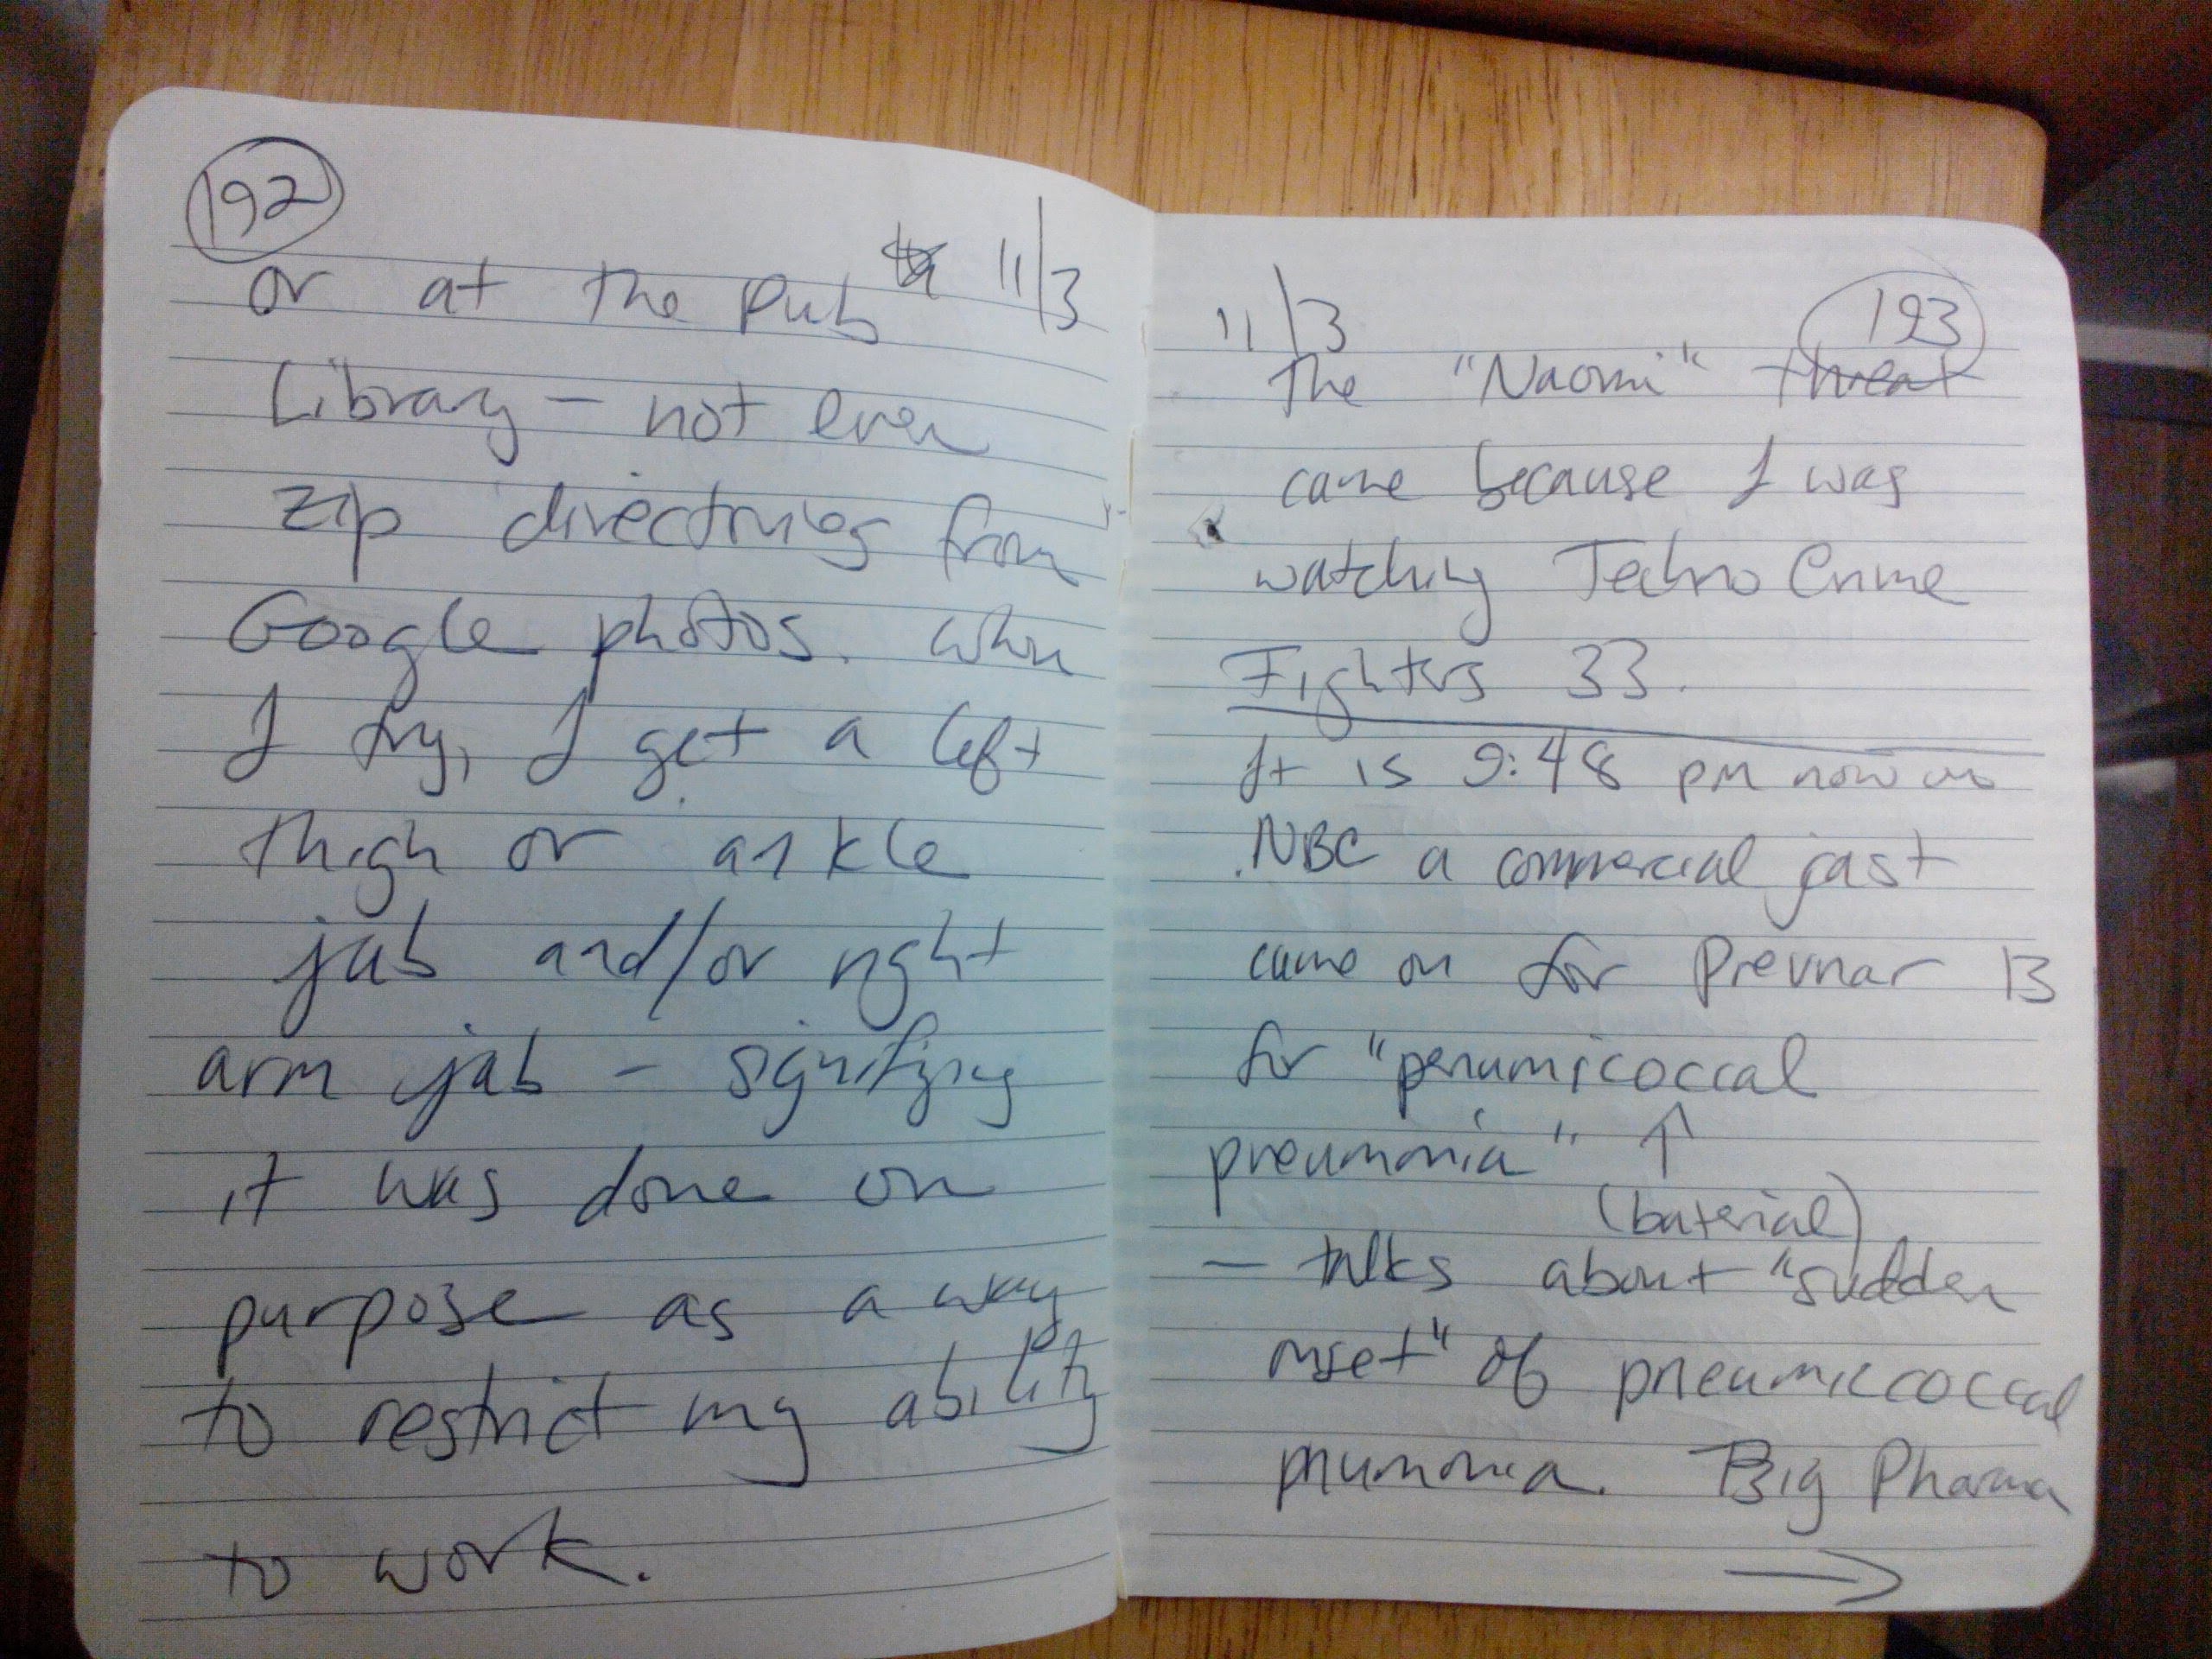 192
11/3
or at the Pub
Library - not even
zip directories from
Google photos. When
I try, I get a left
thigh or ankle
jab and/or right
arm jab - signifying
it was done on
purpose as a way
to restrict my ability
to work.
11/3
193
The "Naomi" threat
came because I was
watching Techno Crime
Fighters 33.
It is 9:48 pm now on
NBC a commercial just
came on for Prevnar 13
for "penumicoccal
pneumonia" ↑
(baterial)
- talks about "sudden
onset" of pneumiccoccal
pnumonia. Big Pharma
→